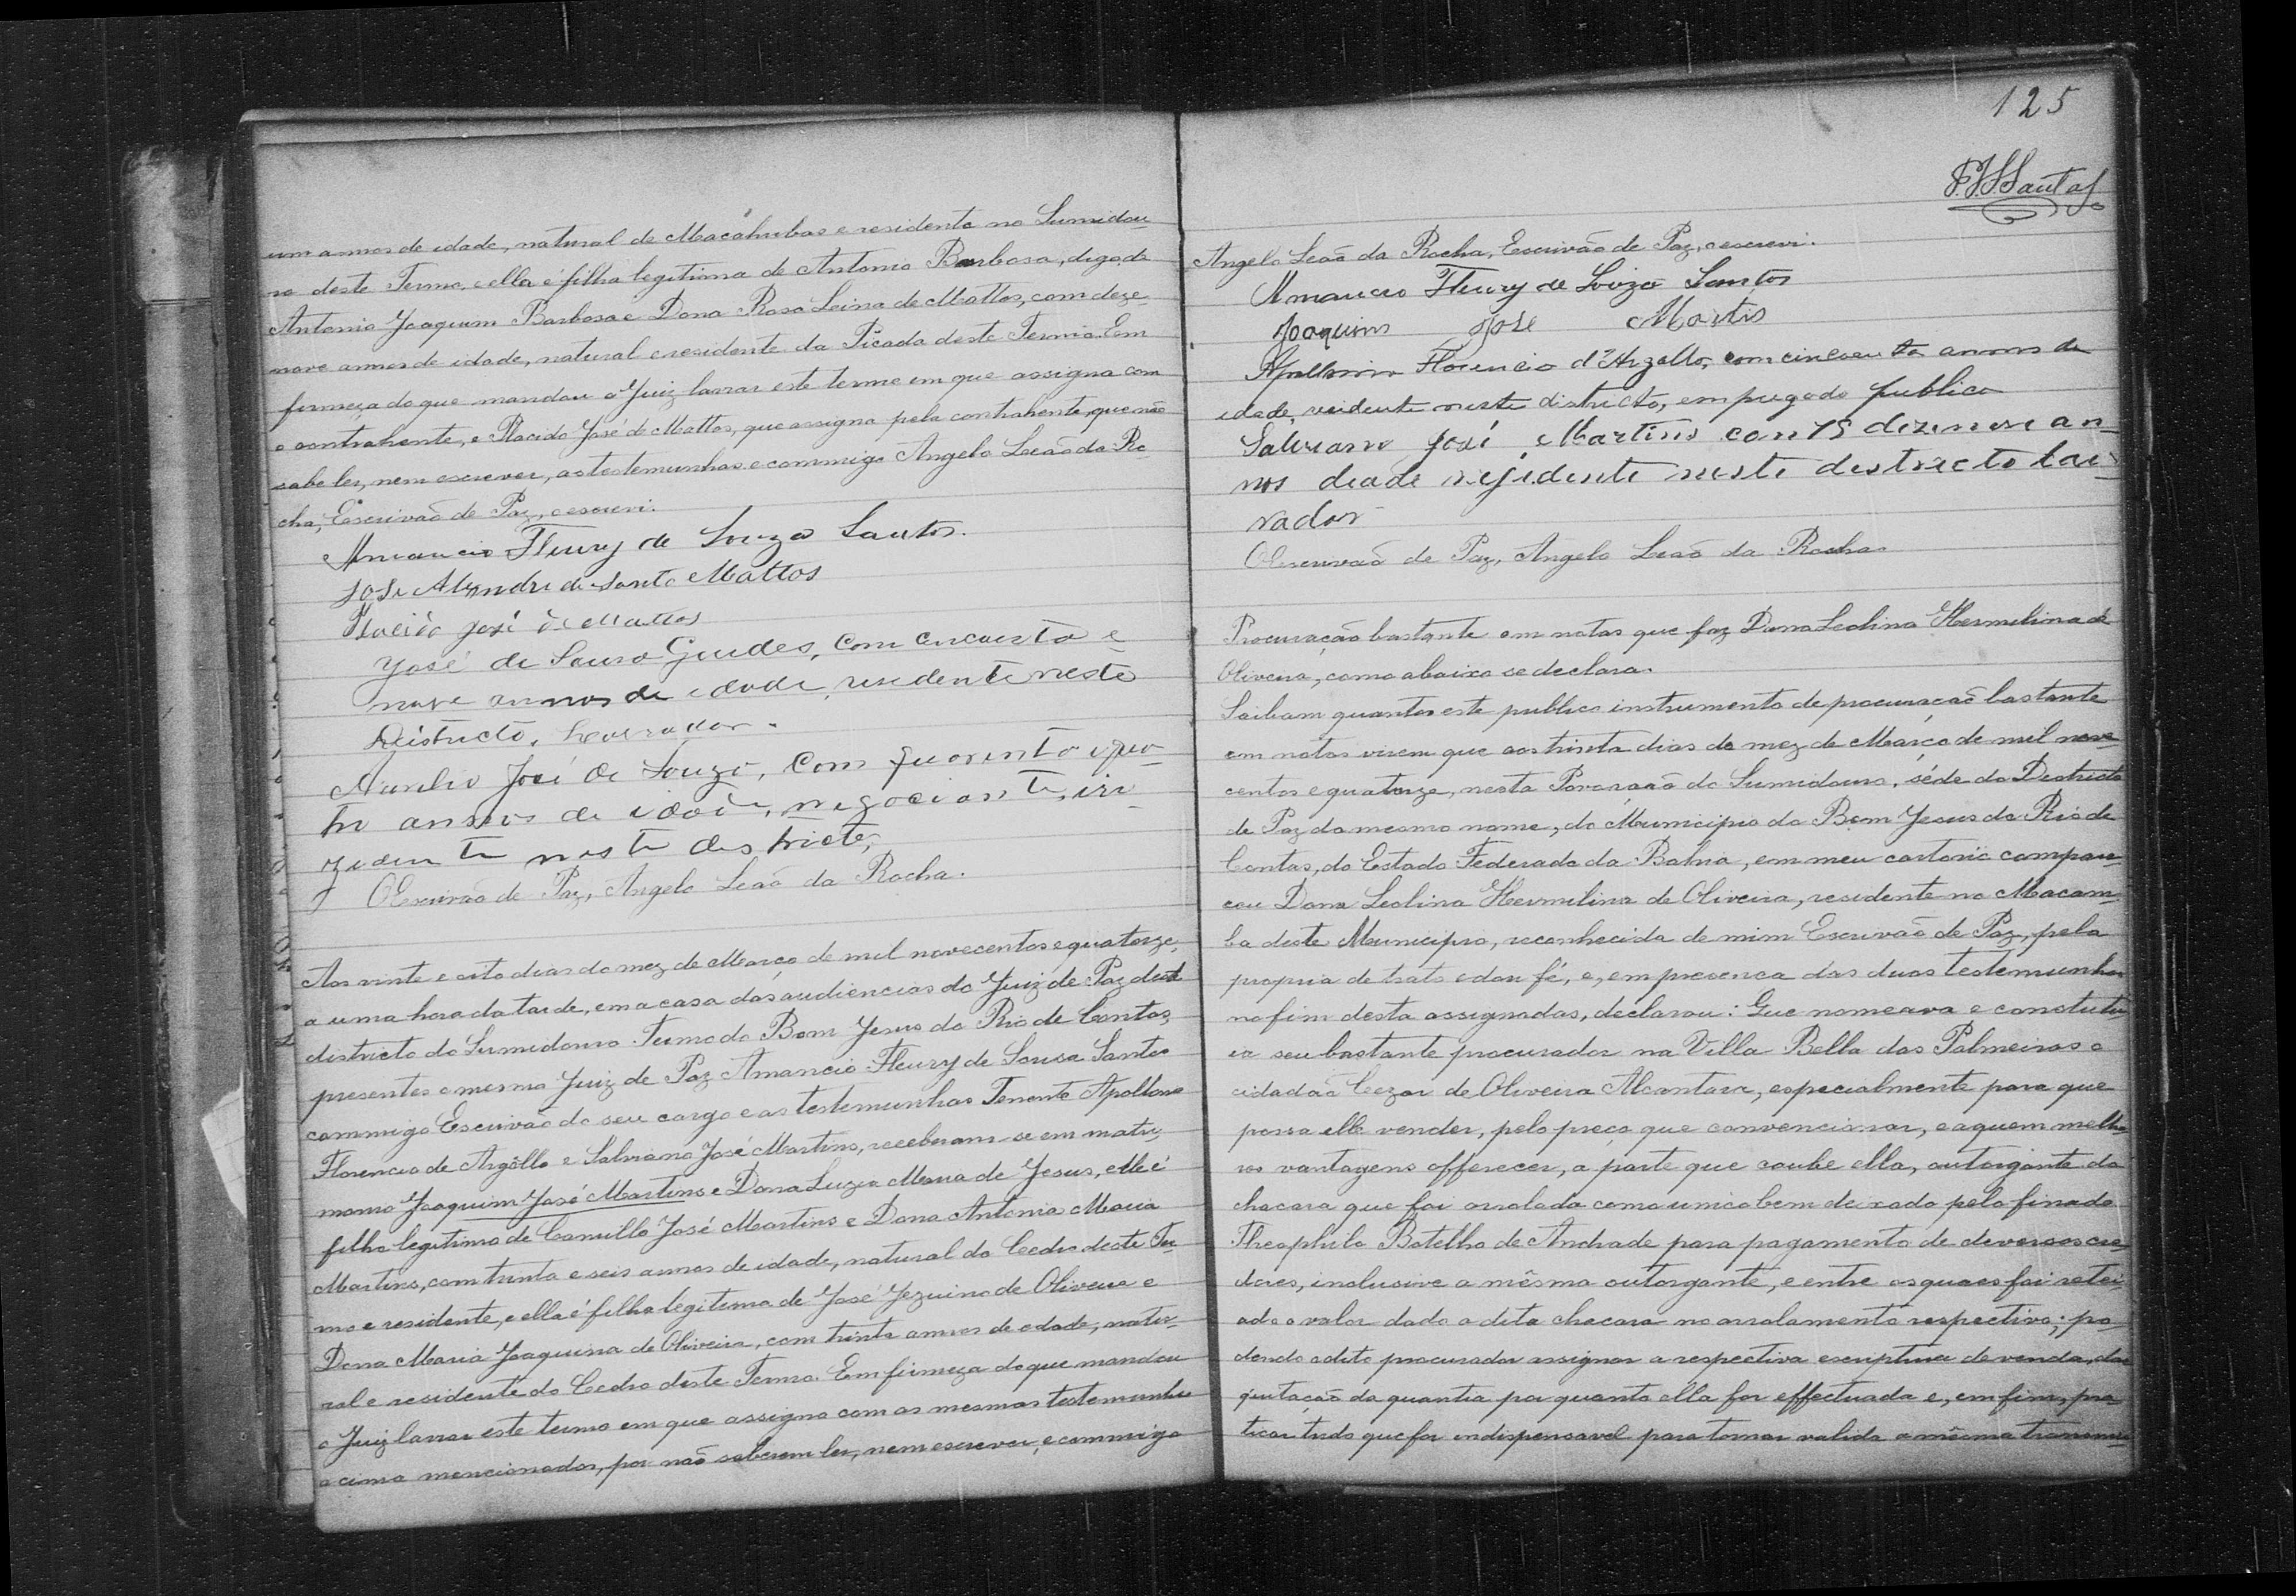 um annos de idade, natural de Macahubas e residente no Sumidou-
ro deste Termo, e ella é filha legitima de Antonio Barbosa, digo, de
Antonio Joaquim Barbosa e Dona Rosa Leina de Mattos, com deze-
nove annos de idade, natural e residente da Picada deste Termo. Em
firmeza do que mandou o Juiz lavrar este termo em que assigna com
o contrahente, e Placido José de Mattos, que assigna pela contrahente, que não
sabe ler, nem escrever, as testemunhas e commigo Angelo Leão da Ro-
cha, Escrivão de Paz, o escrevi.
Amancio Fleury de Souza Santos.
José Alexandre de Santo Mattos
Placido José de Mattos
José de Souza Guedes, com cincoenta e
nove annos de edade, residente neste
Districto, lavrador.
Aurelio José de Souza, com quarenta e qua-
tro annos de idade, negociante, ri-
zidente neste destricto,
O Escrivão de Paz, Angelo Leão da Rocha.
Aos vinte e oito dias do mez de Março de mil novecentos e quatorze,
a uma hora da tarde, em a casa das audiencias do Juiz de Paz deste
districto do Sumidouro Termo do Bom Jesus do Rio de Contas,
presentes o mesmo Juiz de Paz Amancio Fleury de Sousa Santos
commigo Escrivão do seu cargo e as testemunhas Tenente Apollonio
Florencio de Argôllo e Salviano José Martins, receberam-se em matri-
monio Joaquim José Martins e Dona Luzia Maria de Jesus, elle é
filho legitimo de Camillo José Martins e Dona Antonia Maria
Martins, com trinta e seis annos de idade, natural do Cedro deste Ter-
mo e residente, e ella é filha legitima de José Jezuino de Oliveira e
Dona Maria Joaquina de Oliveira, com trinta annos de edade, natu-
ral e residente do Cedro deste Termo. Em firmeza do que mandou
o Juiz lavrar este termo em que assigna com as mesmas testemunhas
acima mencionados, por não saberem ler, nem escrever, e commigo
125
Angelo Leão da Rocha, Escrivão de Paz, o escrevi.
Amancio Fleury de Souza Santos
Joaquim José Martis
Apollonio Florencio d'Argollo, com cincoenta annos de
idade, residente neste districto, empregado publico
Salviano José Martins com 19 dezenove an-
nos deade rezidente neste destrecto lav-
rador
O Escrivão de Paz, Angelo Leão da Rocha
Procuração bastante em notas que faz Dona Leolina Hermelina de
Oliveira, como abaixo se declara.
Saibam quantos este publico instrumento de procuração bastante
em notas virem que aos trinta dias do mez de Março de mil nove-
centos e quatorze, nesta Povoação do Sumidouro, séde do Districto
de Paz do mesmo nome, do Municipio do Bom Jesus do Rio de
Contas, do Estado Federado da Bahia, em meu cartorio compare-
ceu Dona Leolina Hermelina de Oliveira, residente no Macam-
ba deste Municipio, reconhecida de mim Escrivão de Paz, pela
propria de trato e dou fé, e, em presença das duas testemunhas
no fim desta assignadas, declarou: Que nomeava e constitu-
ia seu bastante procurador na Villa Bella das Palmeiras o
cidadão Cezar de Oliveira Alcantara, especialmente para que
possa elle vender, pelo preço que convencionar, e a quem melho-
res vantagens offerecer, a parte que coube ella, outorgante da
chacara que foi arrolada como unico bem deixado pelo finado
Theophilo Botelho de Andrade para pagamento de deversos cre-
dores, inclusive a mêsma outorgante, e entre os quaes foi ratei-
ado o valor dado a dita chacara no arrolamento respectivo; po-
dendo o dito procurador assignar a respectiva escriptura de venda, dar
quitação da quantia por quanto ella for effectuada e, em fim, pra-
ticar tudo que for indispensavel para tornar valida a mêsma transmis-